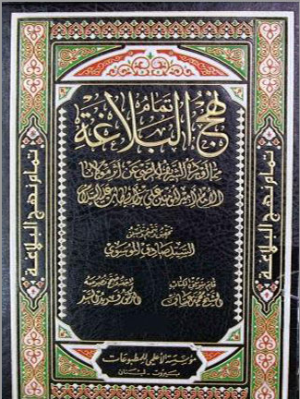 تمام
نهج البلاغة
مما أورده الشريف الرضي عن أثر مولانا
الإمام أمير المؤمنين علي بن أبي طالب عليه السلام
تحقيق تتميم تنسيق
السيد صادق الموسوي
مؤسسة الأعلمي للمطبوعات
بيروت - لبنان
تمام نهج البلاغة
تمام نهج البلاغة